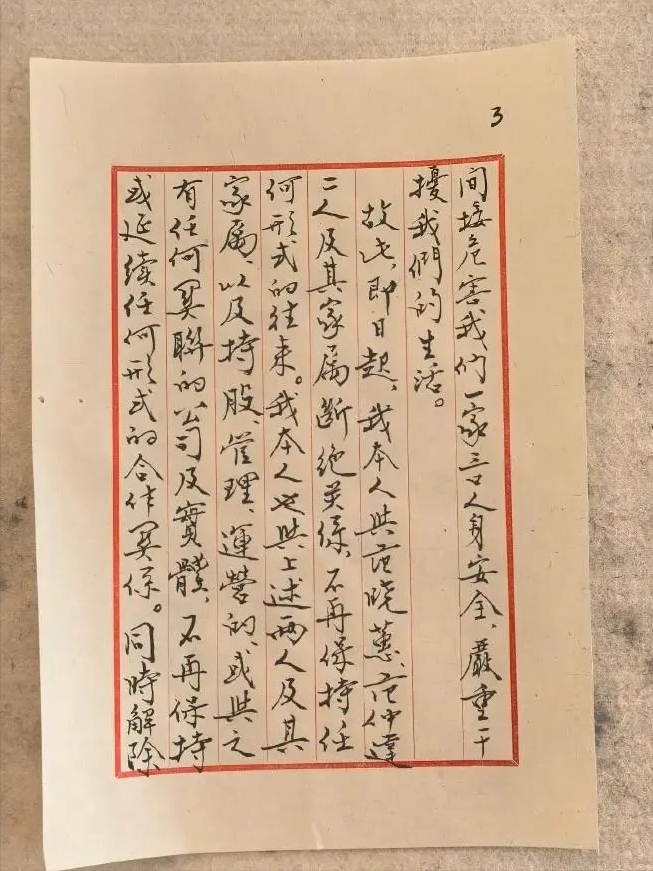 3
间接危害我们一家三口人身安全、嚴重干
擾我們的生活。
故此、即日起、我本人與范晓蕙、范仲達
二人及其家属斷绝关係、不再保持任
何形式的往来。我本人也與上述两人及其
家属、以及持股、管理、運营的、或與之
有任何関聯的公司及實體、不再保持
或延续任何形式的合作関係。同時解除